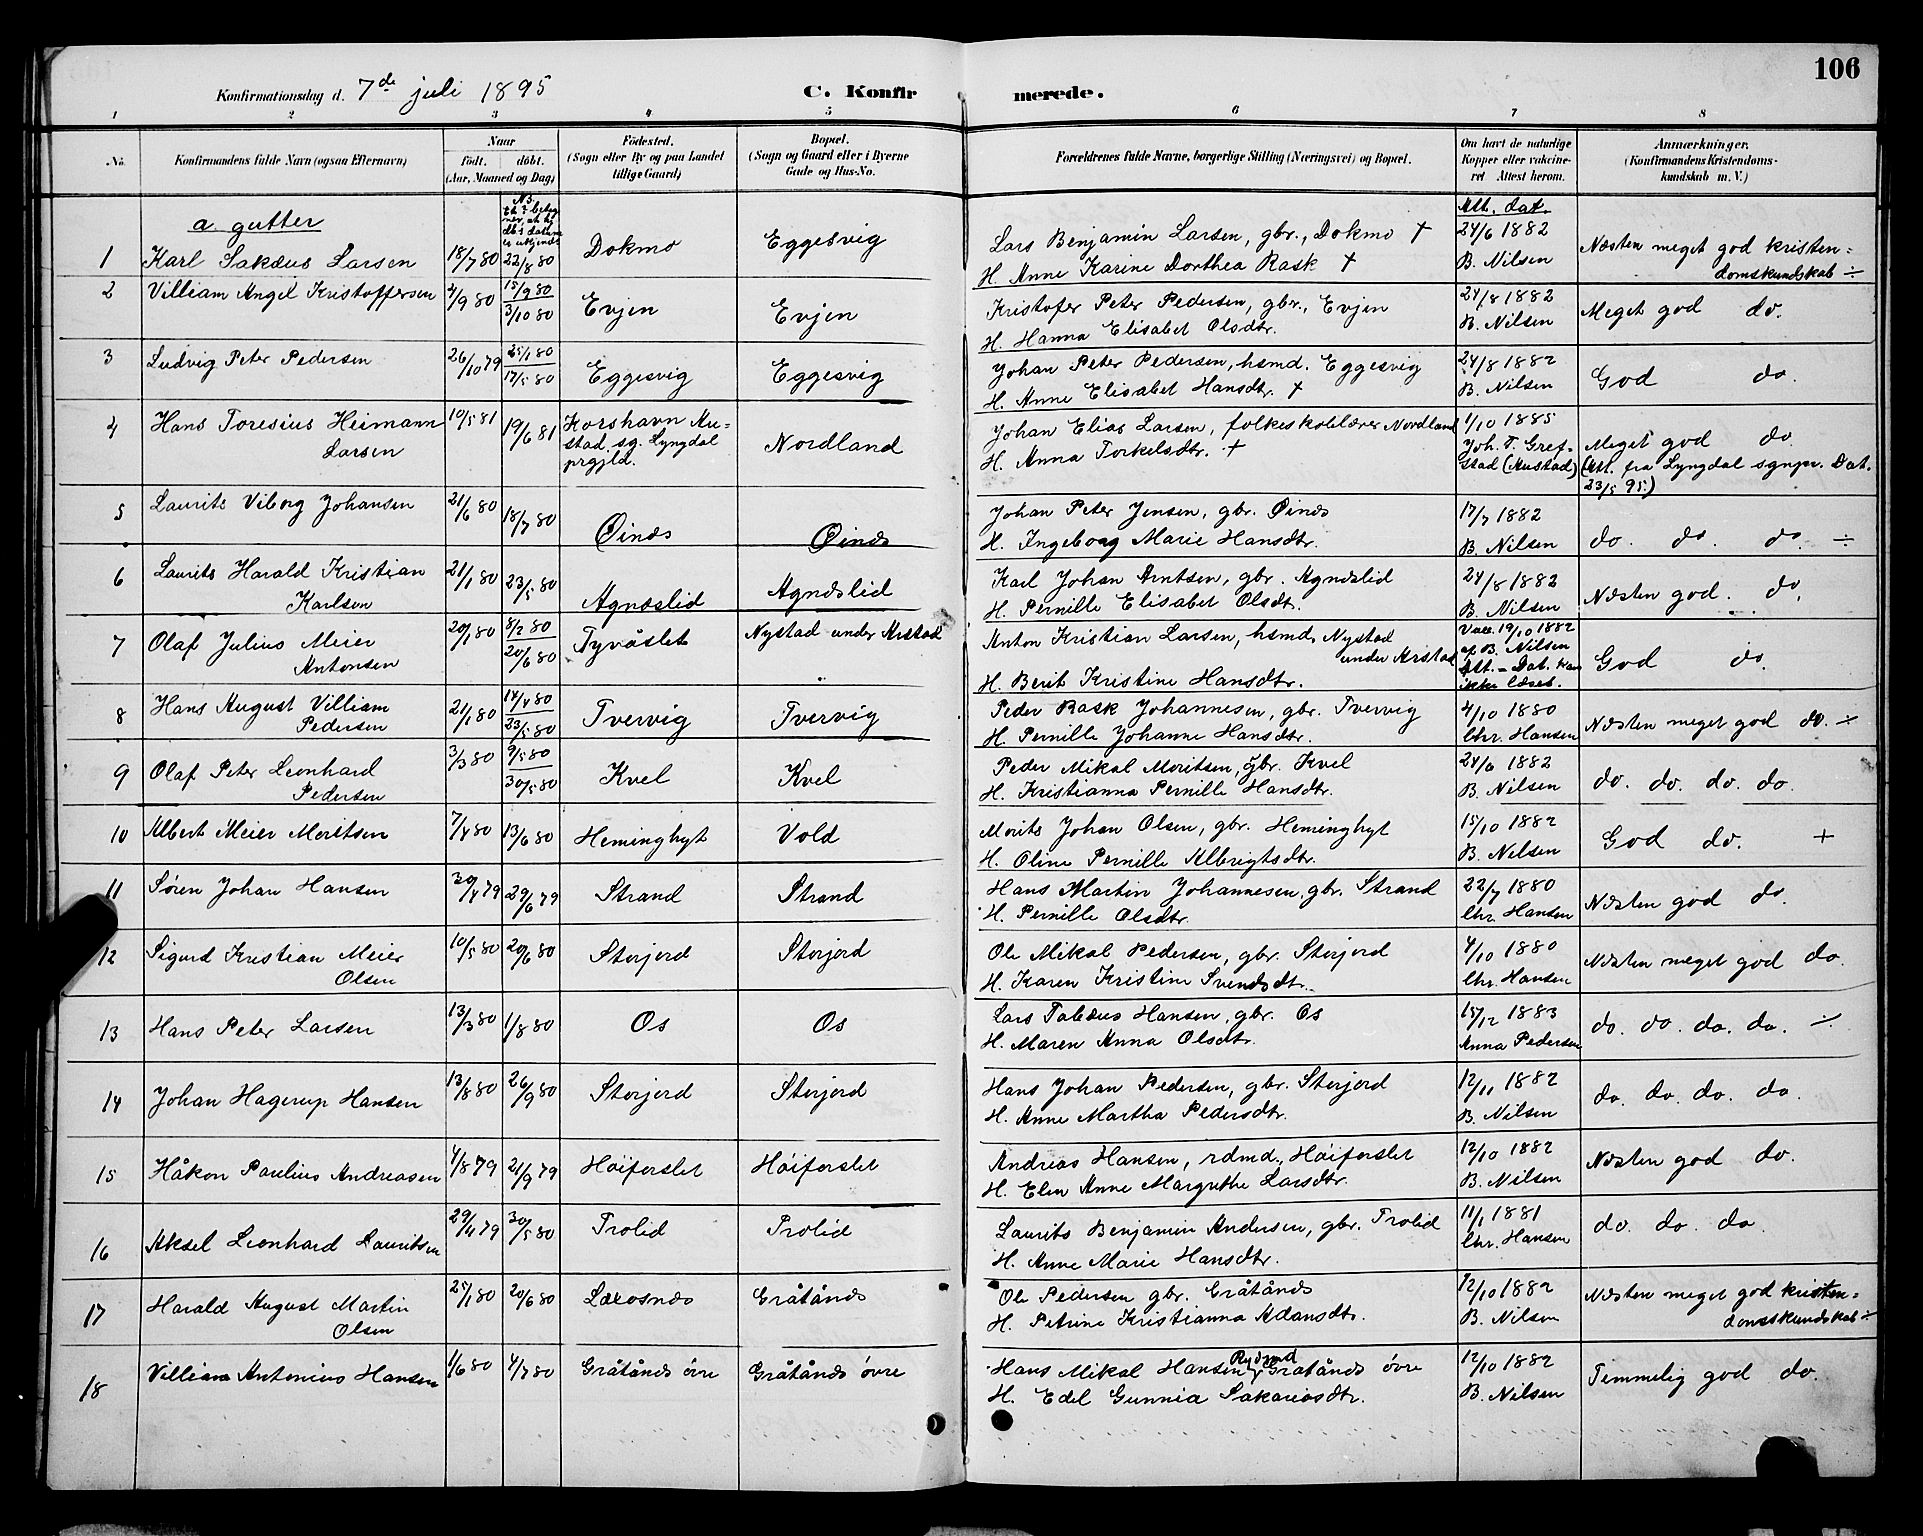 106
Konfirmationsdag d. 7de juli 1895 C. Konfirmerede.
1 2 3 4 5 6 7 8
No. Konfirmandens fulde Navn (ogsaa Efternavn) Naar födt. döbt. (Aar, Maaned og Dag) Födested. (Sogn eller By og paa Landet tillige Gaard) Bopæl. (Sogn og Gaard eller i Byerne Gade og Hus-No. Forældrenes fulde Navne, borgerlige Stilling (Næringsvei) og Bopæl. Om havt de naturlige Kopper eller vakcineret Attest herom. Anmærkninger. (Konfirmandens Kristendomskundskab m. V.)
a. gutter
Att. dat.
1 Karl Sakæus Larsen 18/7 80 22/8 80 Dokmo Eggesvig Lars Benjamin Larsen, gbr., Dokmo † 24/6 1882 Næsten meget god kristen=
H. Anne Karine Dorthea Rask † B. Nilsen domskundskab ÷
2 Villiam Angel Kristoffersen 4/9 80 15/9 80 Evjen Evjen Kristofer Peter Pedersen, gbr., Evjen 24/8 1882 Meget god do.
3/10 80 H. Hanna Elisabet Olsdtr. B. Nilsen
3 Ludvig Peter Pedersen 26/10 79 25/1 80 Eggesvig Eggesvig Johan Peter Pedersen, hsmd. Eggesvig 24/8 1882 God do.
17/5 80 H. Anne Elisabet Hansdtr. † B. Nilsen
4 Hans Toresius Heimann 10/5 81 19/6 81 Korshavn Au= Nordland Johan Elias Larsen, folkeskolelærer Nordland 1/10 1885 Meget god do.
Larsen stad sg. Lyngdal H. Anna Torkelsdtr. † Joh. T. Gref= (Att. fra Lyngdal sgnpr. Dat.
prgjld. stad (Austad) 23/5 95.)
5 Laurits Viborg Johansen 21/6 80 18/7 80 Øinæs Øinæs Johan Peter Jensen, gbr. Øinæs 17/7 1882 do. do. do. ÷
H. Ingeborg Marie Hansdtr. B. Nilsen
6 Laurits Harald Kristian 21/1 80 23/5 80 Agnæslid Agnæslid Karl Johan Arntsen, gbr. Agnæslid 24/8 1882 Næsten god. do.
Karlsen H. Pernille Elisabet Olsdtr. B. Nilsen
7 Olaf Julius Meier 20/1 80 8/2 80 Tyvåslet Nystad under Arstad Anton Kristian Larsen, hsmd, Nystad Vacc. 19/10 1882 God do.
Antonsen 20/6 80 under Arstad af B. Nilsen
H. Berit Kristine Hansdtr. Att. - Dat. kan ikke læses.
8 Hans August Villiam 21/1 80 14/4 80 Tvervig Tvervig Peder Rask Johannesen, gbr. Tvervig 4/10 1880 Næsten meget god do. ÷
Pedersen 23/5 80 H. Pernille Johanne Hansdtr. Chr. Hansen
9 Olaf Peter Leonhard 3/3 80 9/5 80 Kvel Kvel Peder Mikal Moritsen, gbr. Kvel 24/6 1882 do. do. do. do.
Pedersen 30/5 80 H. Kristianna Pernille Hansdtr. B. Nilsen
10 Albert Meier Moritsen 7/4 80 13/6 80 Heminghyt Vold Morits Johan Olsen, gbr. Heminghyt 15/10 1882 God do. +
H. Oline Pernille Albrigtsdtr. B. Nilsen
11 Søren Johan Hansen 30/4 79 29/6 79 Strand Strand Hans Martin Johannesen, gbr. Strand 22/7 1880 Næsten god do.
H. Pernille Olsdtr. Chr. Hansen
12 Sigurd Kristian Meier 10/5 80 20/6 80 Storjord Storjord Ole Mikal Pedersen, gbr. Storjord 4/10 1880 Næsten meget god do.
Olsen H. Karen Kristine Svendsdtr. Chr. Hansen
13 Hans Peter Larsen 13/3 80 1/8 80 Os Os Lars Tabæus Hansen, gbr. Os 15/12 1883 do. do. do. do. ÷
H. Maren Anna Olsdtr. Anna Pedersen
14 Johan Hagerup Hansen 13/8 80 26/9 80 Storjord Storjord Hans Johan Pedersen, gbr. Storjord 12/11 1882 do. do. do. do.
H. Anne Martha Pedersdtr. B. Nilsen
15 Håkon Paulius Andreasen 4/8 79 21/9 79 Høiforslet Høiforslet Andreas Hansen, rdmd., Høiforslet 12/10 1882 Næsten god do.
H. Elen Anne Margrethe Larsdtr. B. Nilsen
16 Aksel Leonhard Lauritsen 29/11 79 30/5 80 Trolid Trolid Laurits Benjamin Andersen, gbr. Trolid 11/1 1881 do. do. do.
H. Anne Marie Hansdtr. Chr. Hansen
17 Harald August Martin 25/1 80 20/6 80 Laxosnæs Gråtånæs Ole Pedersen gbr. Gråtånæs 12/10 1882 Næsten meget god kristen=
Olsen H. Petrine Kristianna Adamsdtr. B. Nilsen domskundskab ÷
18 Villiam Antonius Hansen 1/6 80 4/7 80 Gråtånæs øvre Gråtånæs øvre Hans Mikal Hansen Rydmd Gråtånæs øvre 12/10 1882 Temmelig god do.
H. Edel Gunnia Sakariasdtr. B. Nilsen